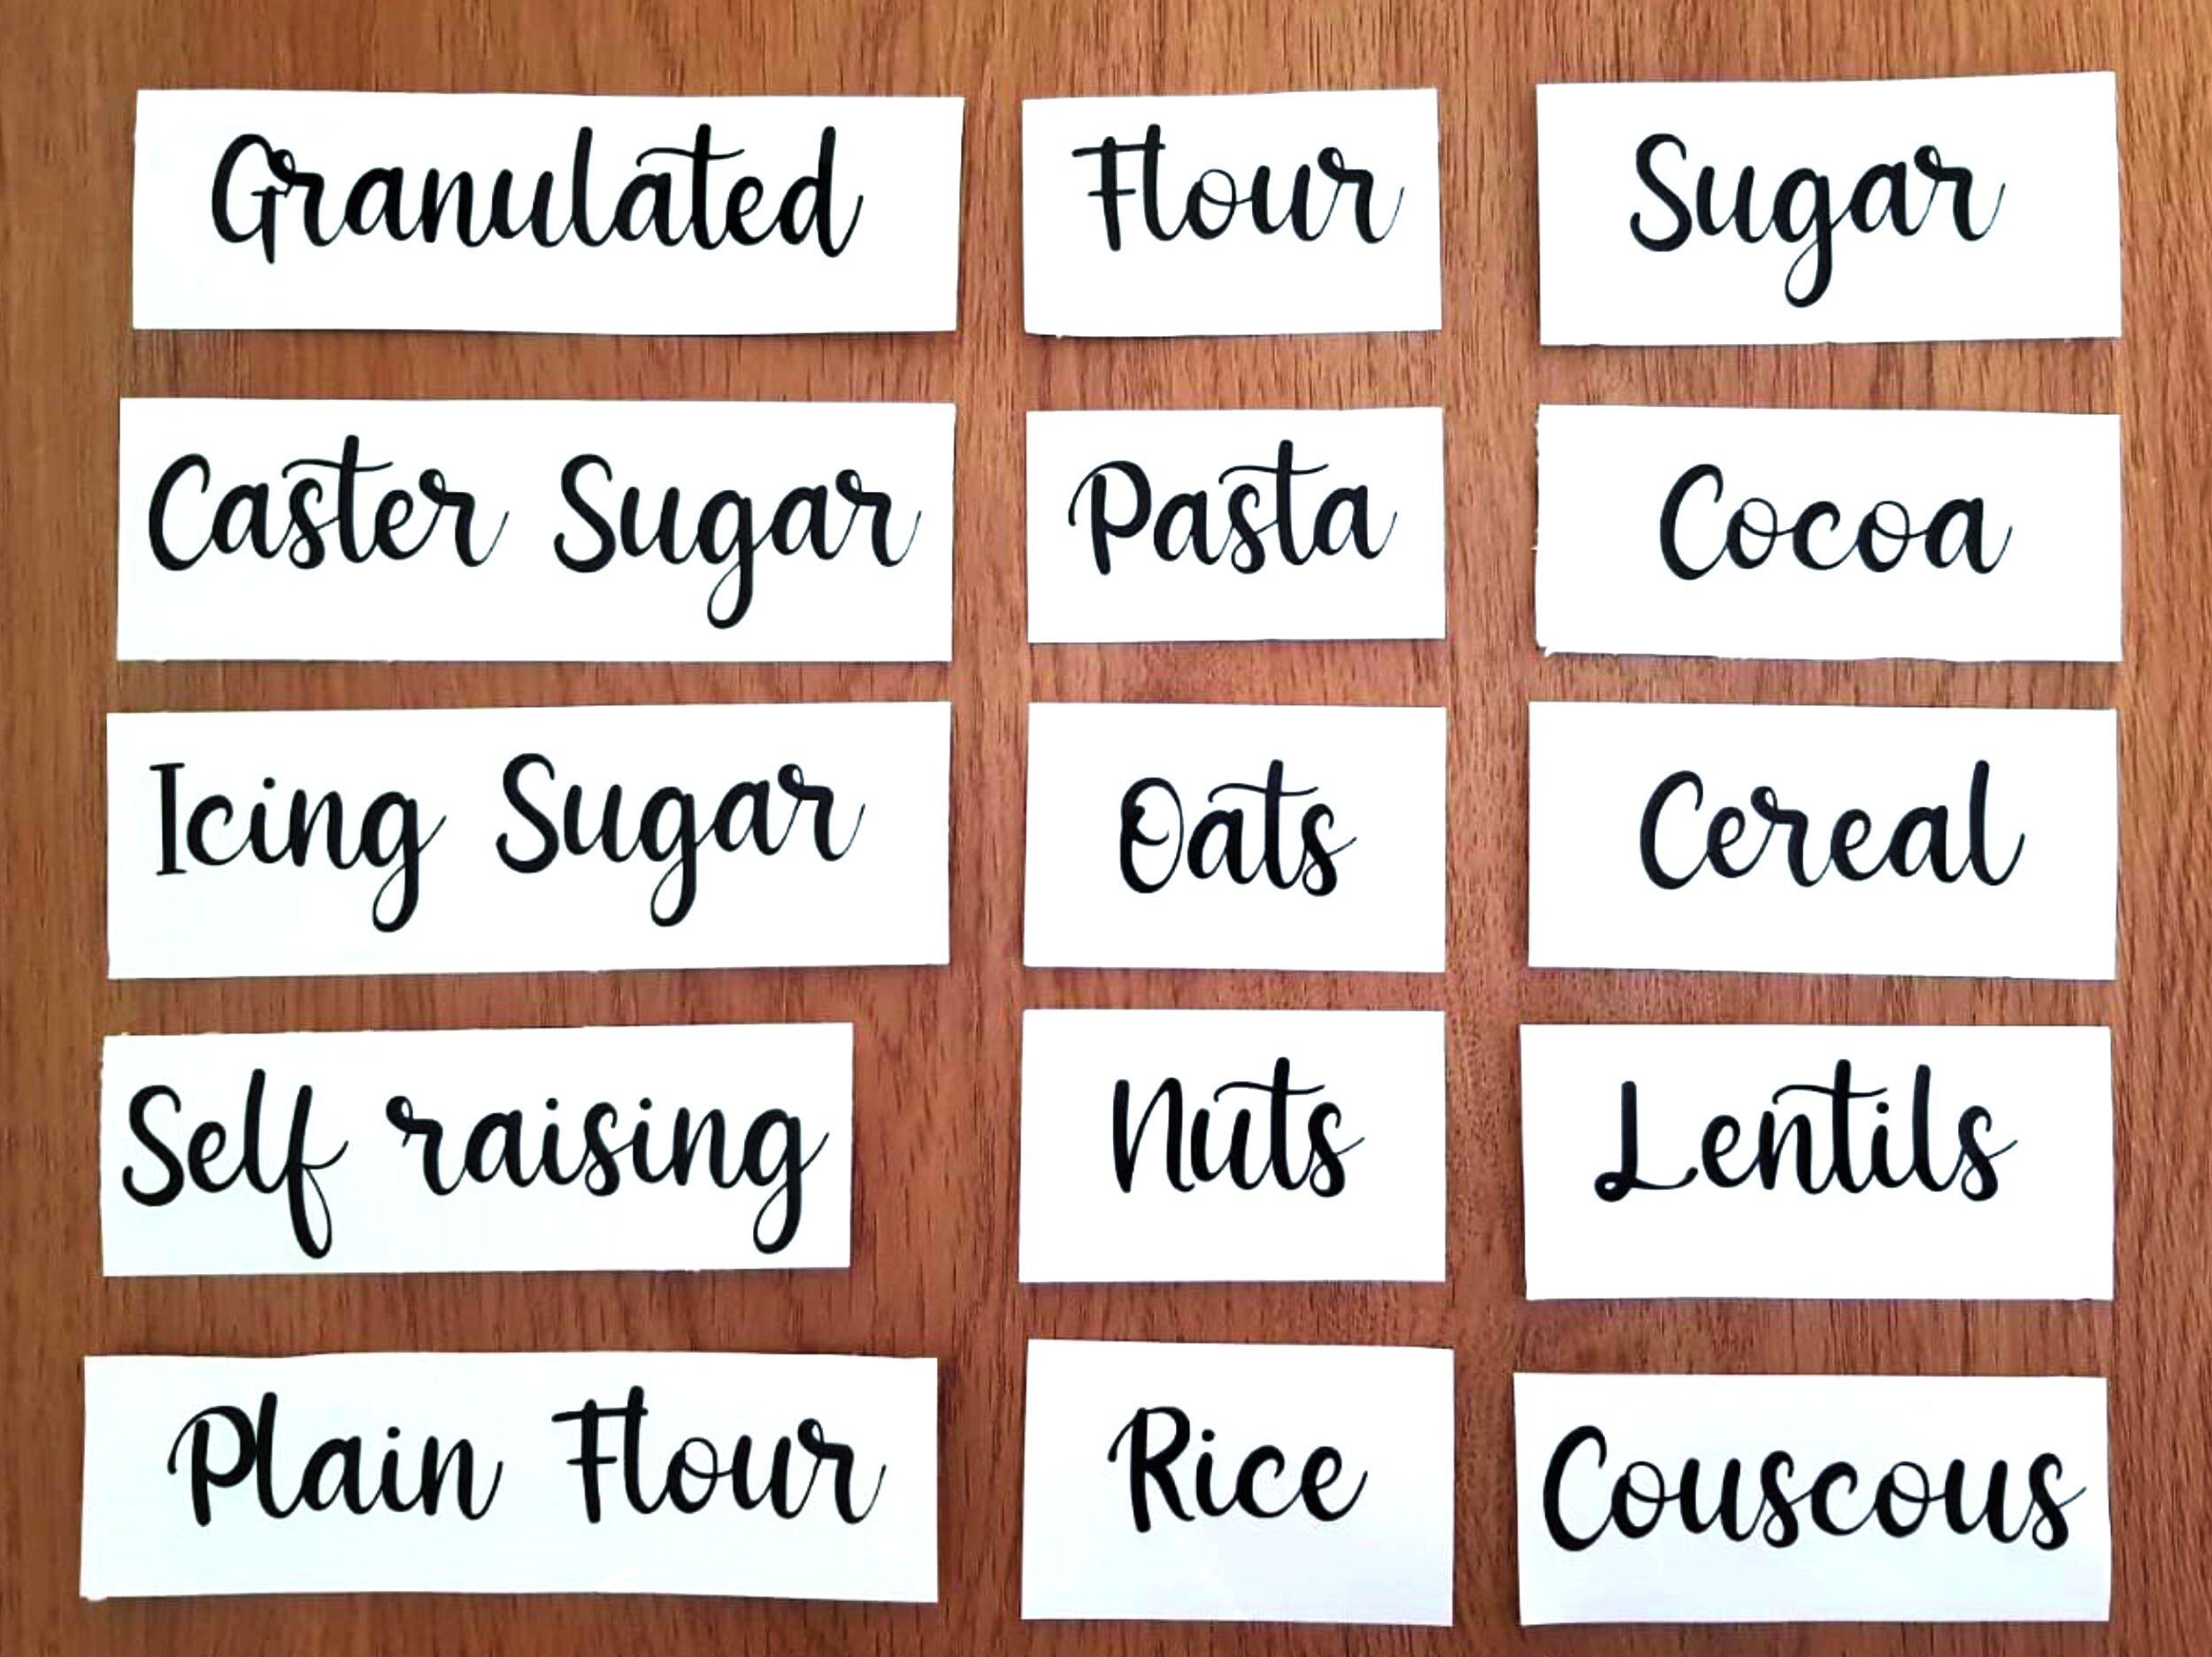 Granulated
Flour
Sugar
Caster Sugar
Pasta
Cocoa
Icing Sugar
Oats
Cereal
Self raising
Nuts
Lentils
Plain Flour
Rice
Couscous